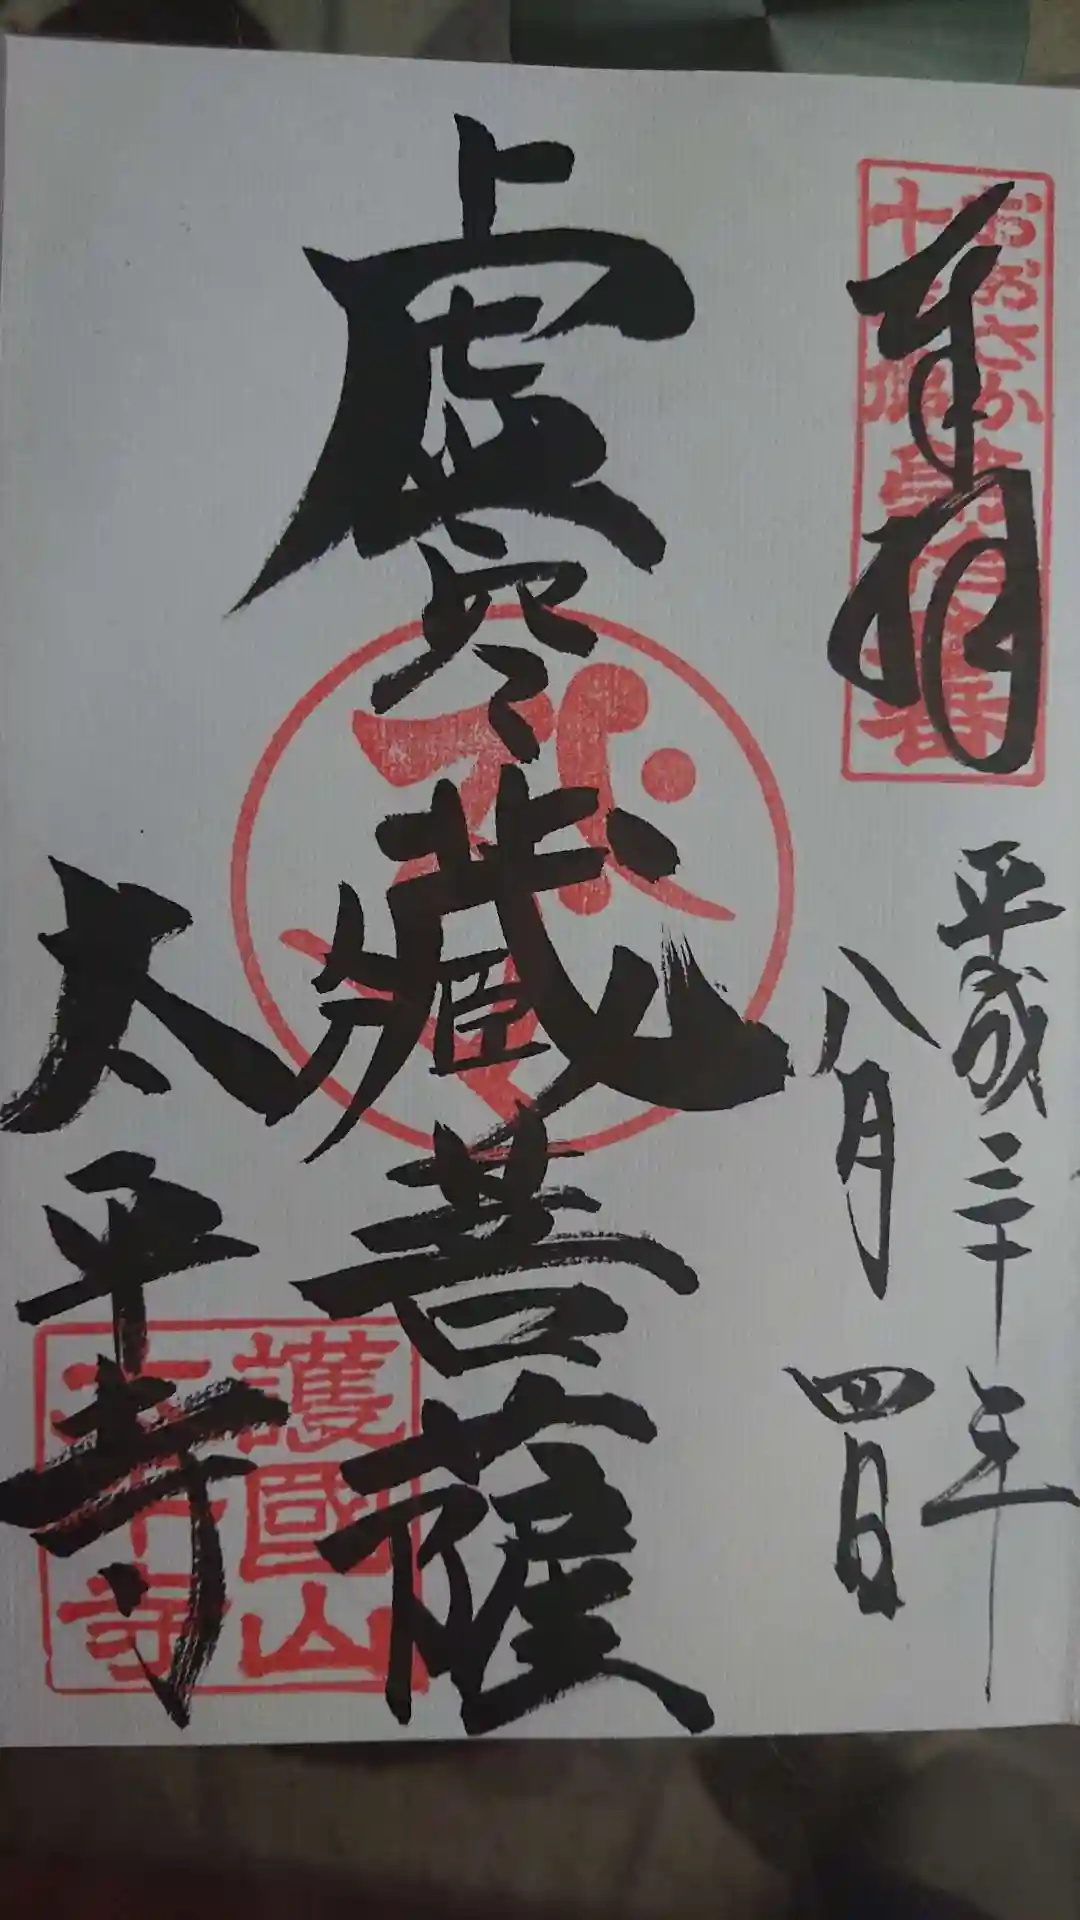 奉拝
おおさか
十三佛
第十三番
平成三十年
八月四日
虚空蔵菩薩
太平寺
護國山
太平寺